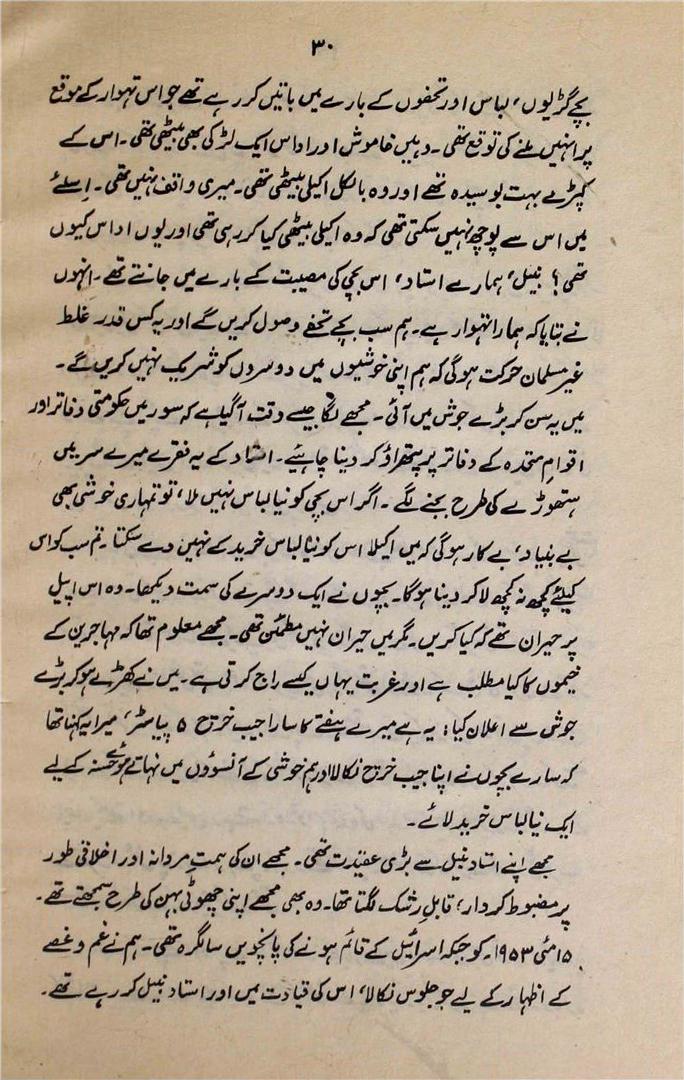 ۳۰
بچے گڑیوں، لباس اور تحفوں کے بارے میں باتیں کر رہے تھے جو اس تہوار کے موقع
پر انہیں ملنے کی توقع تھی۔ وہیں خاموش اور اداس ایک لڑکی بھی بیٹھی تھی۔ اس کے
کپڑے بہت بوسیدہ تھے اور وہ بالکل اکیلی بیٹھی تھی۔ میری واقف نہیں تھی۔ اسلئے
میں اس سے پوچھ نہیں سکتی تھی کہ وہ اکیلی بیٹھی کیا کر رہی تھی اور یوں اداس کیوں
تھی؟ نبیل، ہمارے استاد، اس بچی کی مصیبت کے بارے میں جانتے تھے۔ انہوں
نے بتایا کہ ہمارا تہوار ہے۔ ہم سب بچے تحفے وصول کریں گے اور یہ کس قدر غلط
غیر مسلمان حرکت ہوگی کہ ہم اپنی خوشیوں میں دوسروں کو شریک نہیں کریں گے۔
میں یہ سن کر بڑے جوش میں آئی۔ مجھے لگا جیسے وقت آگیا ہے کہ سور میں حکومتی دفاتر اور
اقوام متحدہ کے دفاتر پر پتھراؤ کر دینا چاہئیے۔ استاد کے یہ فقرے میرے سر میں
ہتھوڑے کی طرح بجنے لگے۔ اگر اس بچی کو نیا لباس نہیں ملا، تو تمہاری خوشی بھی
بے بنیاد، بے کار ہوگی کہ میں اکیلا اس کو نیا لباس خرید کے نہیں دے سکتا۔ تم سب کو اس
کیلئے کچھ نہ کچھ لا کر دینا ہوگا۔ بچوں نے ایک دوسرے کی سمت دیکھا۔ وہ اس اپیل
پر حیران تھے کہ کیا کریں۔ مگر میں حیران نہیں مطمئن تھی۔ مجھے معلوم تھا کہ مہاجرین کے
خیموں کا کیا مطلب ہے اور غربت یہاں کیسے راج کرتی ہے۔ میں نے کھڑے ہو کر بڑے
جوش سے اعلان کیا: یہ ہے میرے ہفتے کا سارا جیب خرچ ۵ پیاسٹر، میرا یہ کہنا تھا
کہ سارے بچوں نے اپنا جیب خرچ نکالا اور ہم خوشی کے آنسوؤں میں نہاتے ہوئے حسنہ کے لیے
ایک نیا لباس خرید لائے۔
مجھے اپنے استاد نبیل سے بڑی عقیدت تھی۔ مجھے ان کی ہمت مردانہ اور اخلاقی طور
پر مضبوط کردار، قابل رشک لگتا تھا۔ وہ بھی مجھے اپنی چھوٹی بہن کی طرح سمجھتے تھے۔
۱۵ مئی ۱۹۵۳۔ کو جبکہ اسرائیل کے قائم ہونے کی پانچویں سالگرہ تھی۔ ہم نے غم و غصے
کے اظہار کے لیے جو جلوس نکالا، اس کی قیادت میں اور استاد نبیل کر رہے تھے۔